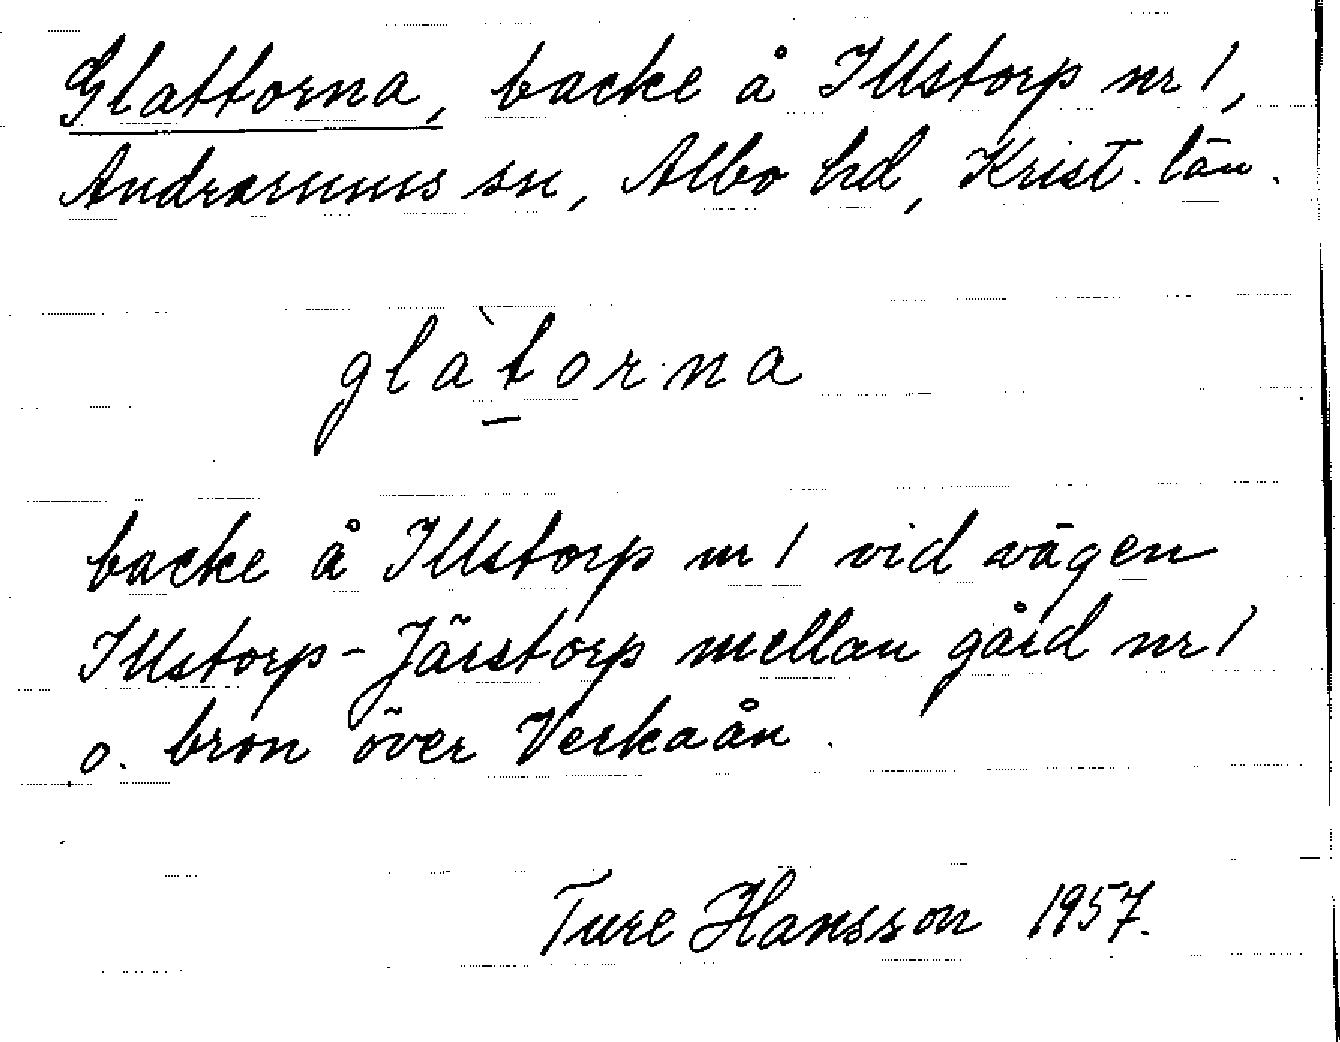 Glattorna, backe å Illstorp nr 1,
Andrarums sn, Albo hd, Krist. län.
glàt̲orna
backe å Illstorp nr 1 vid vägen
Illstorp-Järstorp mellan gård nr 1
o. bron över Verkaån.
Ture Hansson 1957.